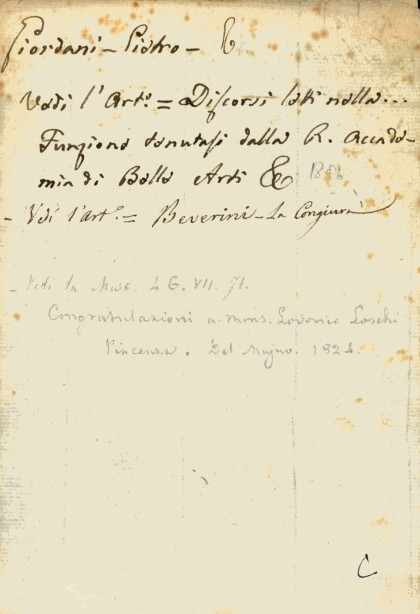 Giordani - Pietro - &
Vedi l'Art.º = Discorsi letti nella...
Funzione tenutasi dalla R. Accade-
mia di Belle Arti &
- Vedi l'art.º = Beverini - La Congiura
- Vedi la Misc. 4 G. VII. 91.
Congratulazioni a mons. Lodovico Loschi
Piacenza. Del Majno. 1824.
C